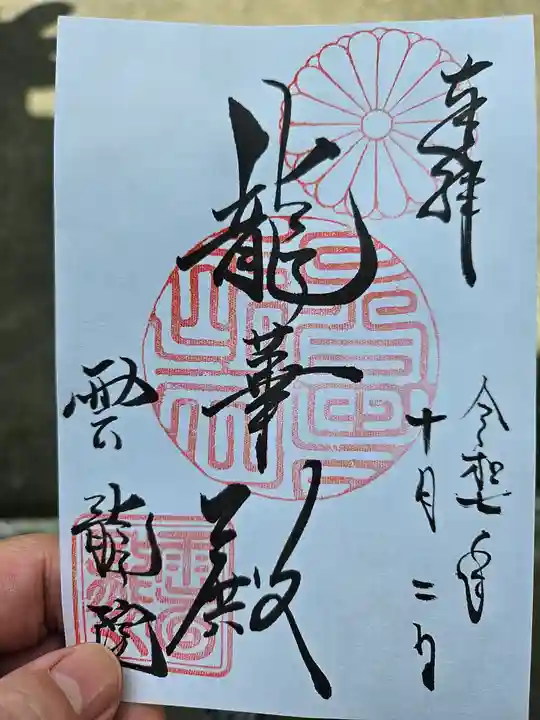 奉拝
令和七年
十月二日
龍華殿
雲龍院